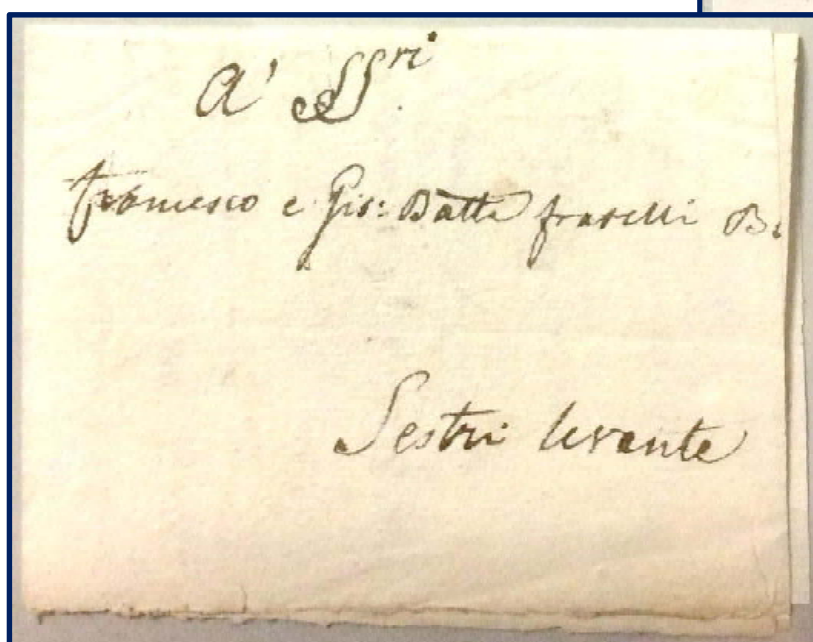 A' SSri
francesco e Gio: Batta fratelli
Sestri levante